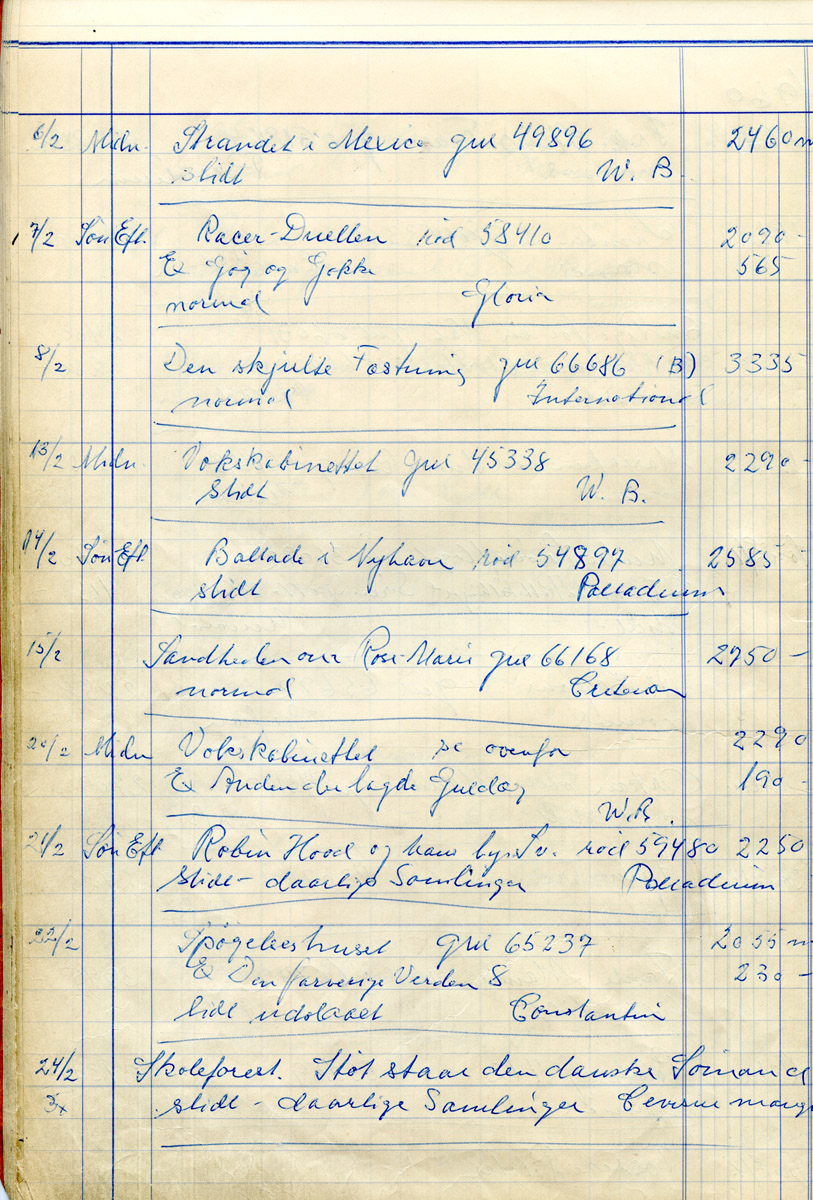 6/2 Midn. Strandet i Mexico gul 49896 2460 m
slidt W. B.
7/2 Søn Eft. Racer-Duellen rød 58410 2090 -
Ex Gøg og Gokke 565
normal Gloria
8/2 Den skjulte Fæstning gul 66686 (B) 3335
normal International
13/2 Midn. Vokskabinettet gul 45338 2290 -
slidt W. B.
14/2 Søn Eft. Ballade i Nyhavn rød 54897 2585 -
slidt Palladium
15/2 Sandheden om Rose-Marie gul 66168 2950 -
normal
20/2 Midn Vokskabinettet se ovenfor 2290
Ex Anden der lagde Guldæg 190 -
W.B.
21/2 Søn Eft Robin Hood og hans rød 59480 2250
slidt - daarlige Samlinger Palladium
22/2 Spøgelseshuset gul 65237 2055 m
Ex Den farverige Verden 8 230 -
lidt Constantin
24/2 Skoleforest. Støt staar den danske Sømand
slidt - daarlige Samlinger